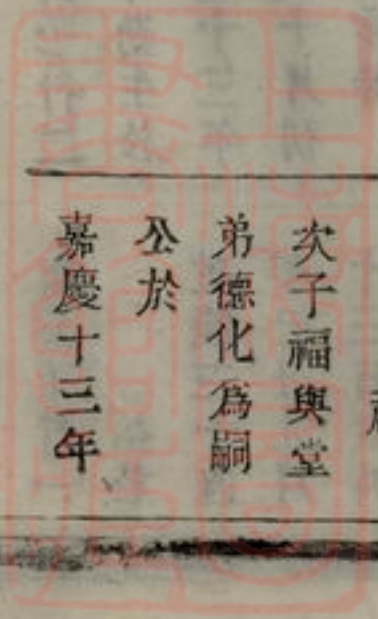 次子福與堂
弟德化爲嗣
公於
嘉慶十三年